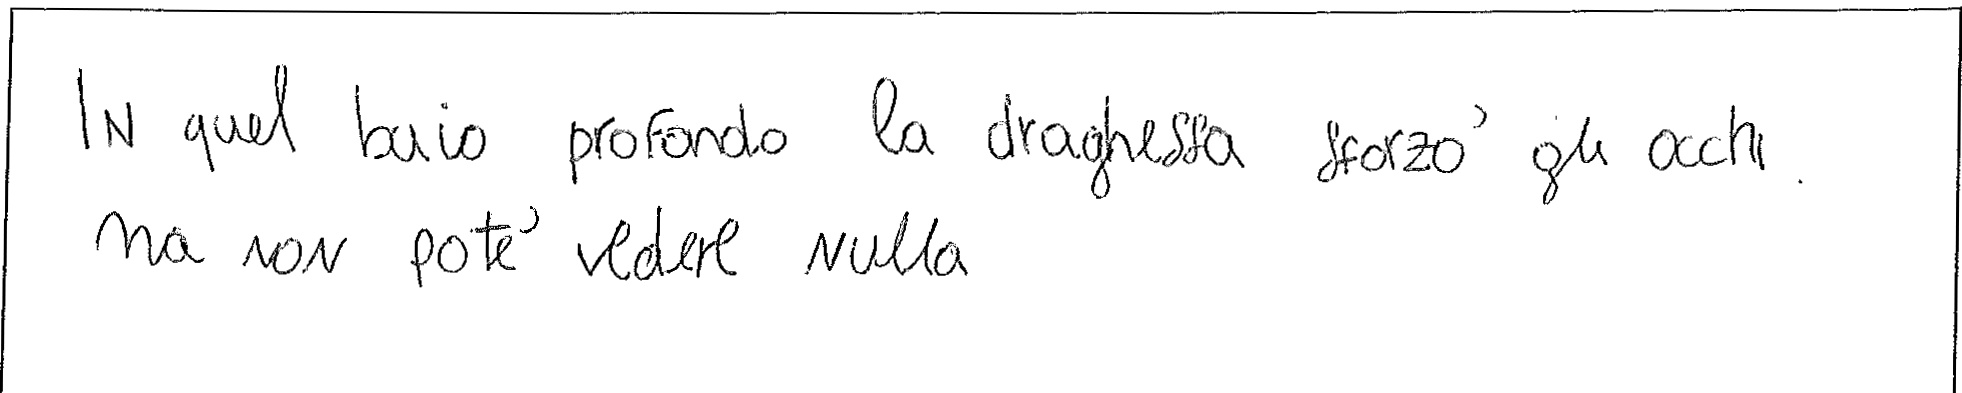 In quel buio profondo la draghessa sforzò gli occhi.
ma non poté vedere nulla